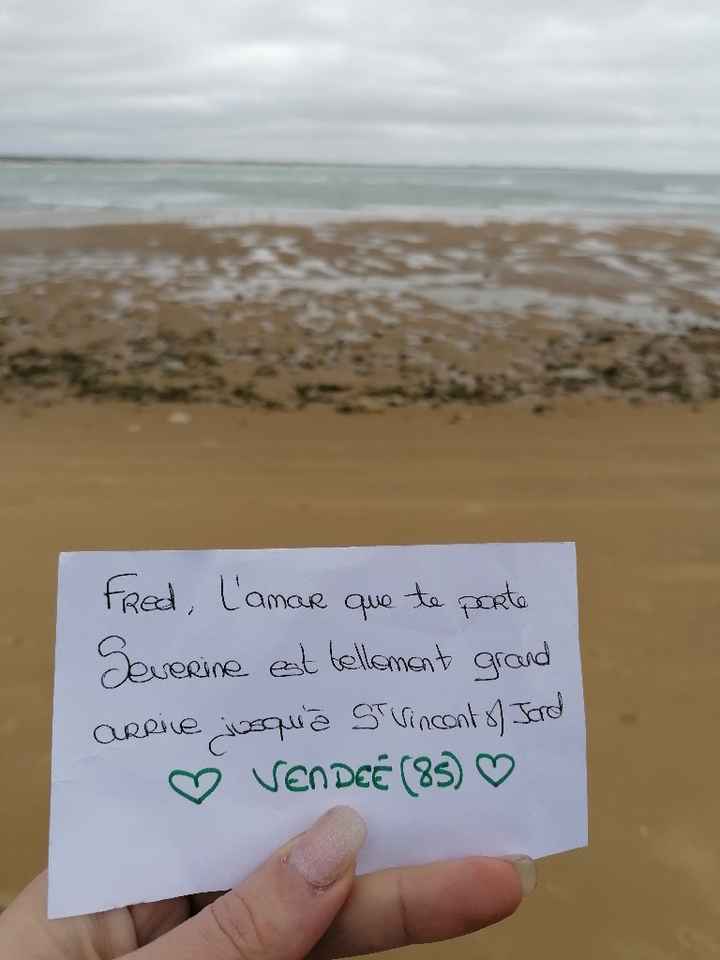 Fred, L'amar que te porte
Severine est tellement grand
arrive jusqu'à St Vincent s/ Jard
♡ VENDEÉ (85) ♡